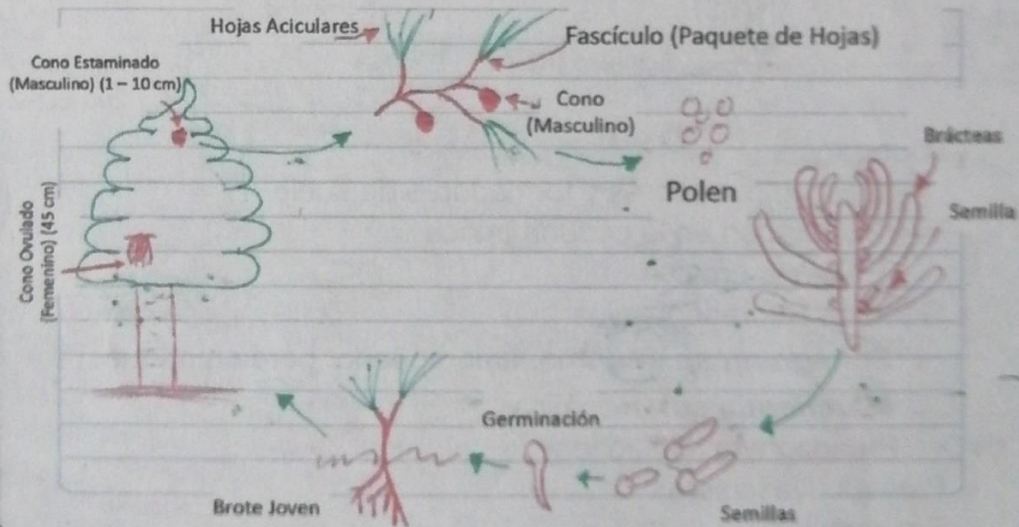 Hojas Aciculares
Fascículo (Paquete de Hojas)
Cono Estaminado
(Masculino) (1 – 10 cm)
Cono
(Masculino)
Brácteas
Polen
Semilla
Cono Ovulado
(Femenino) (45 cm)
Germinación
Brote Joven
Semillas